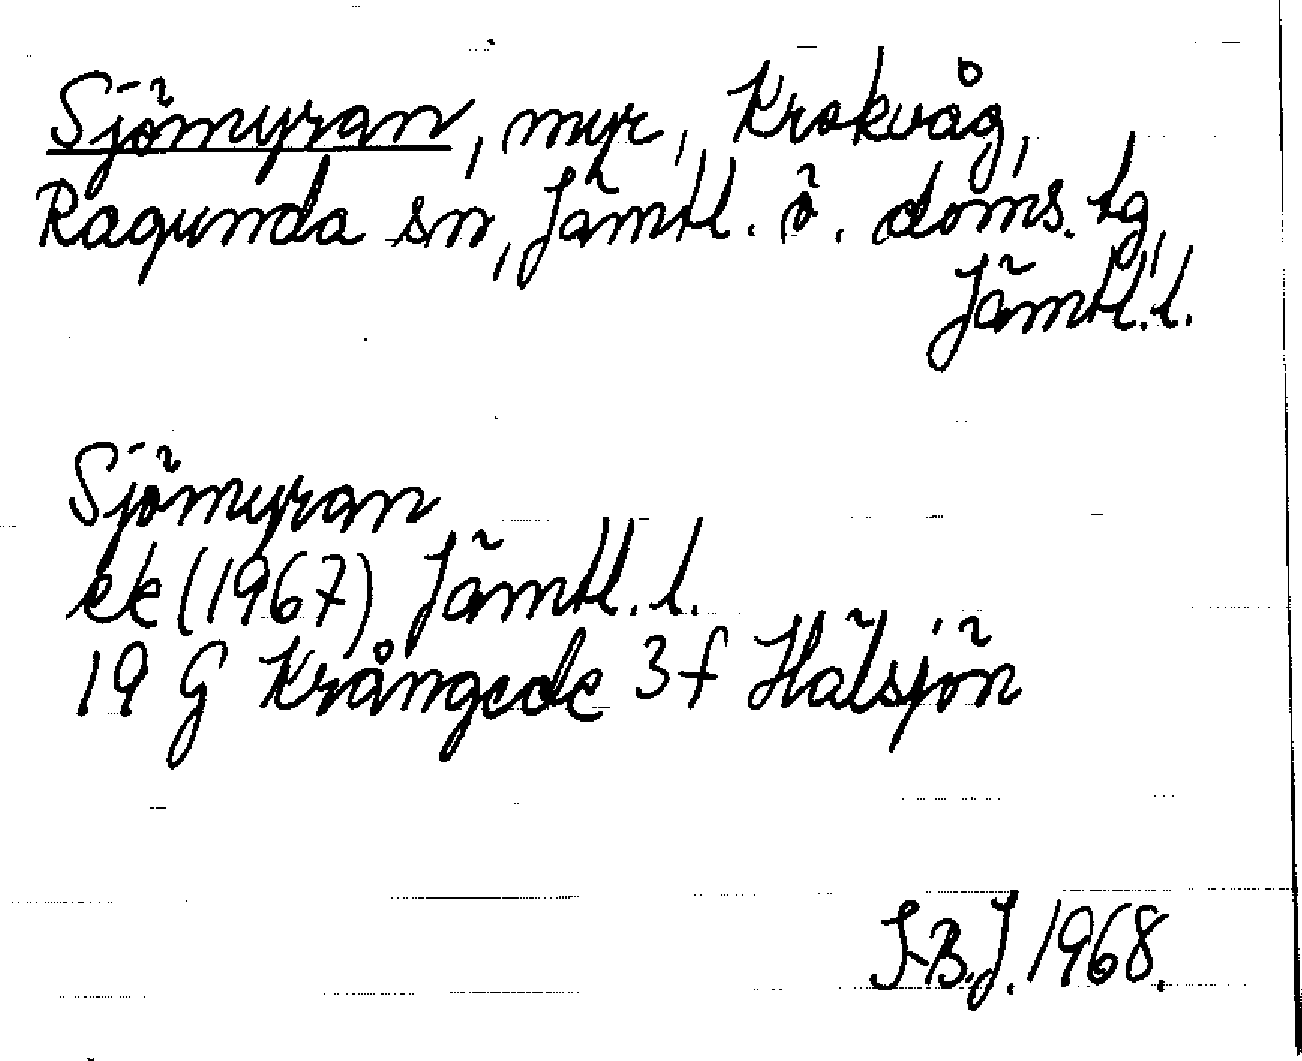 Sjömyran, myr, Krokvåg,
Ragunda sn, Jämtl. ö. doms. tg,
Jämtl. l.
Sjömyran
ek (1967) Jämtl. l.
19 G Krångede 3 f Hälsjön
I-B.J. 1968.